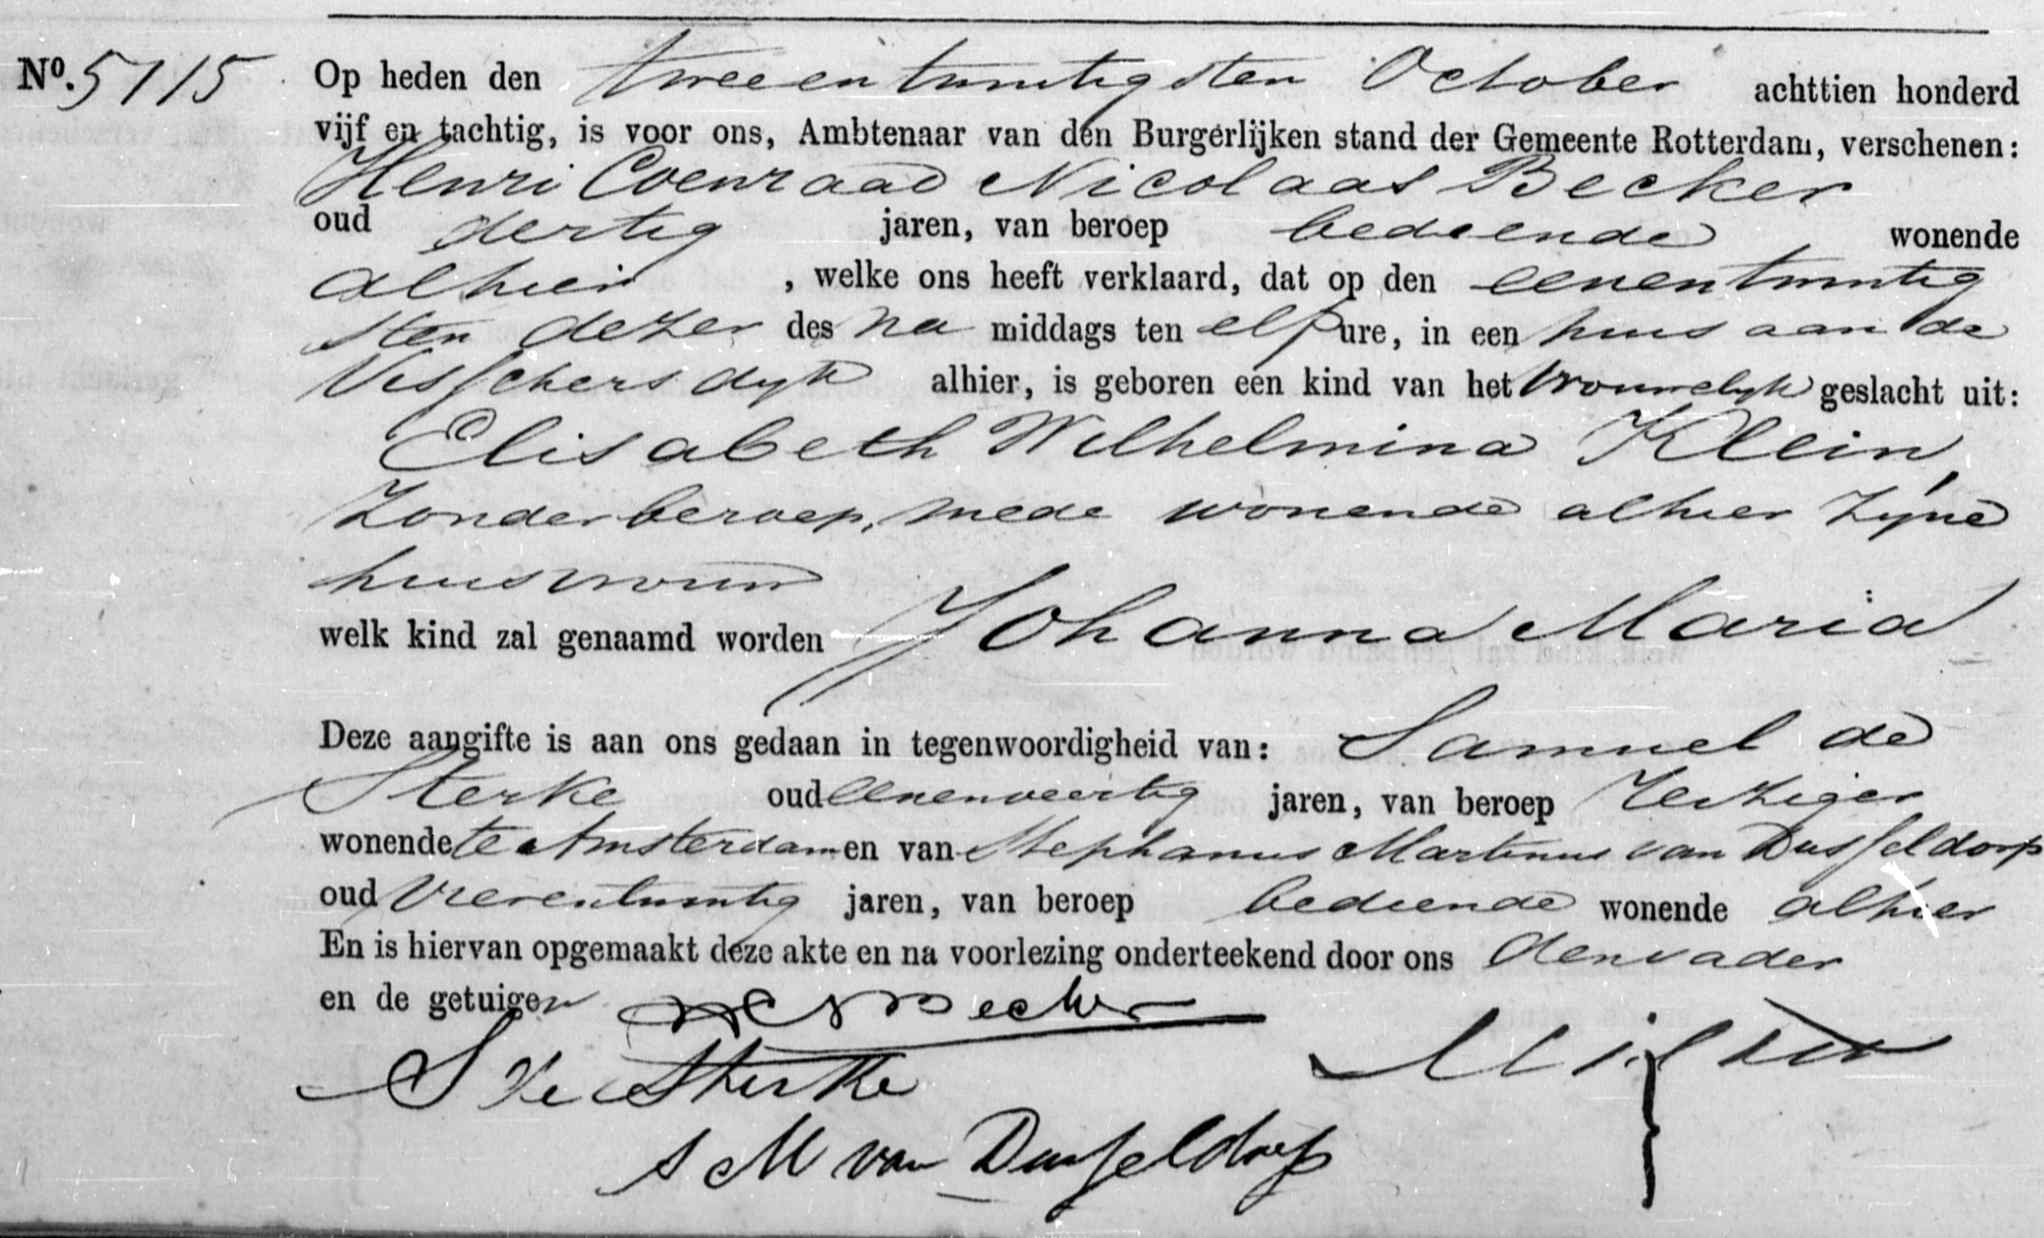 No. 5115 Op heden den tweeentwintigsten October achttien honderd
vijf en tachtig, is voor ons, Ambtenaar van den Burgerlijken stand der Gemeente Rotterdam, verschenen:
Henri Coenraad Nicolaas Becker
oud dertig jaren, van beroep bediende wonende
alhier, welke ons heeft verklaard, dat op den eenentwintig
sten dezer des na middags ten elf ure, in een huis aan de
Visschersdyk alhier, is geboren een kind van het vrouwelyk geslacht uit:
Elisabeth Wilhelmina Klein,
zonder beroep, mede wonende alhier zyne
huisvrouw
welk kind zal genaamd worden Johanna Maria
Deze aangifte is aan ons gedaan in tegenwoordigheid van: Samuel de
Sterke oud eenenveertig jaren, van beroep reiziger
wonende te Amsterdam en van Stephanus Martinus van Dusseldorp
oud vierentwintig jaren, van beroep bediende wonende alhier
En is hiervan opgemaakt deze akte en na voorlezing onderteekend door ons den vader
en de getuigen HCN Becker
S de Sterke
S M van Dusseldorp